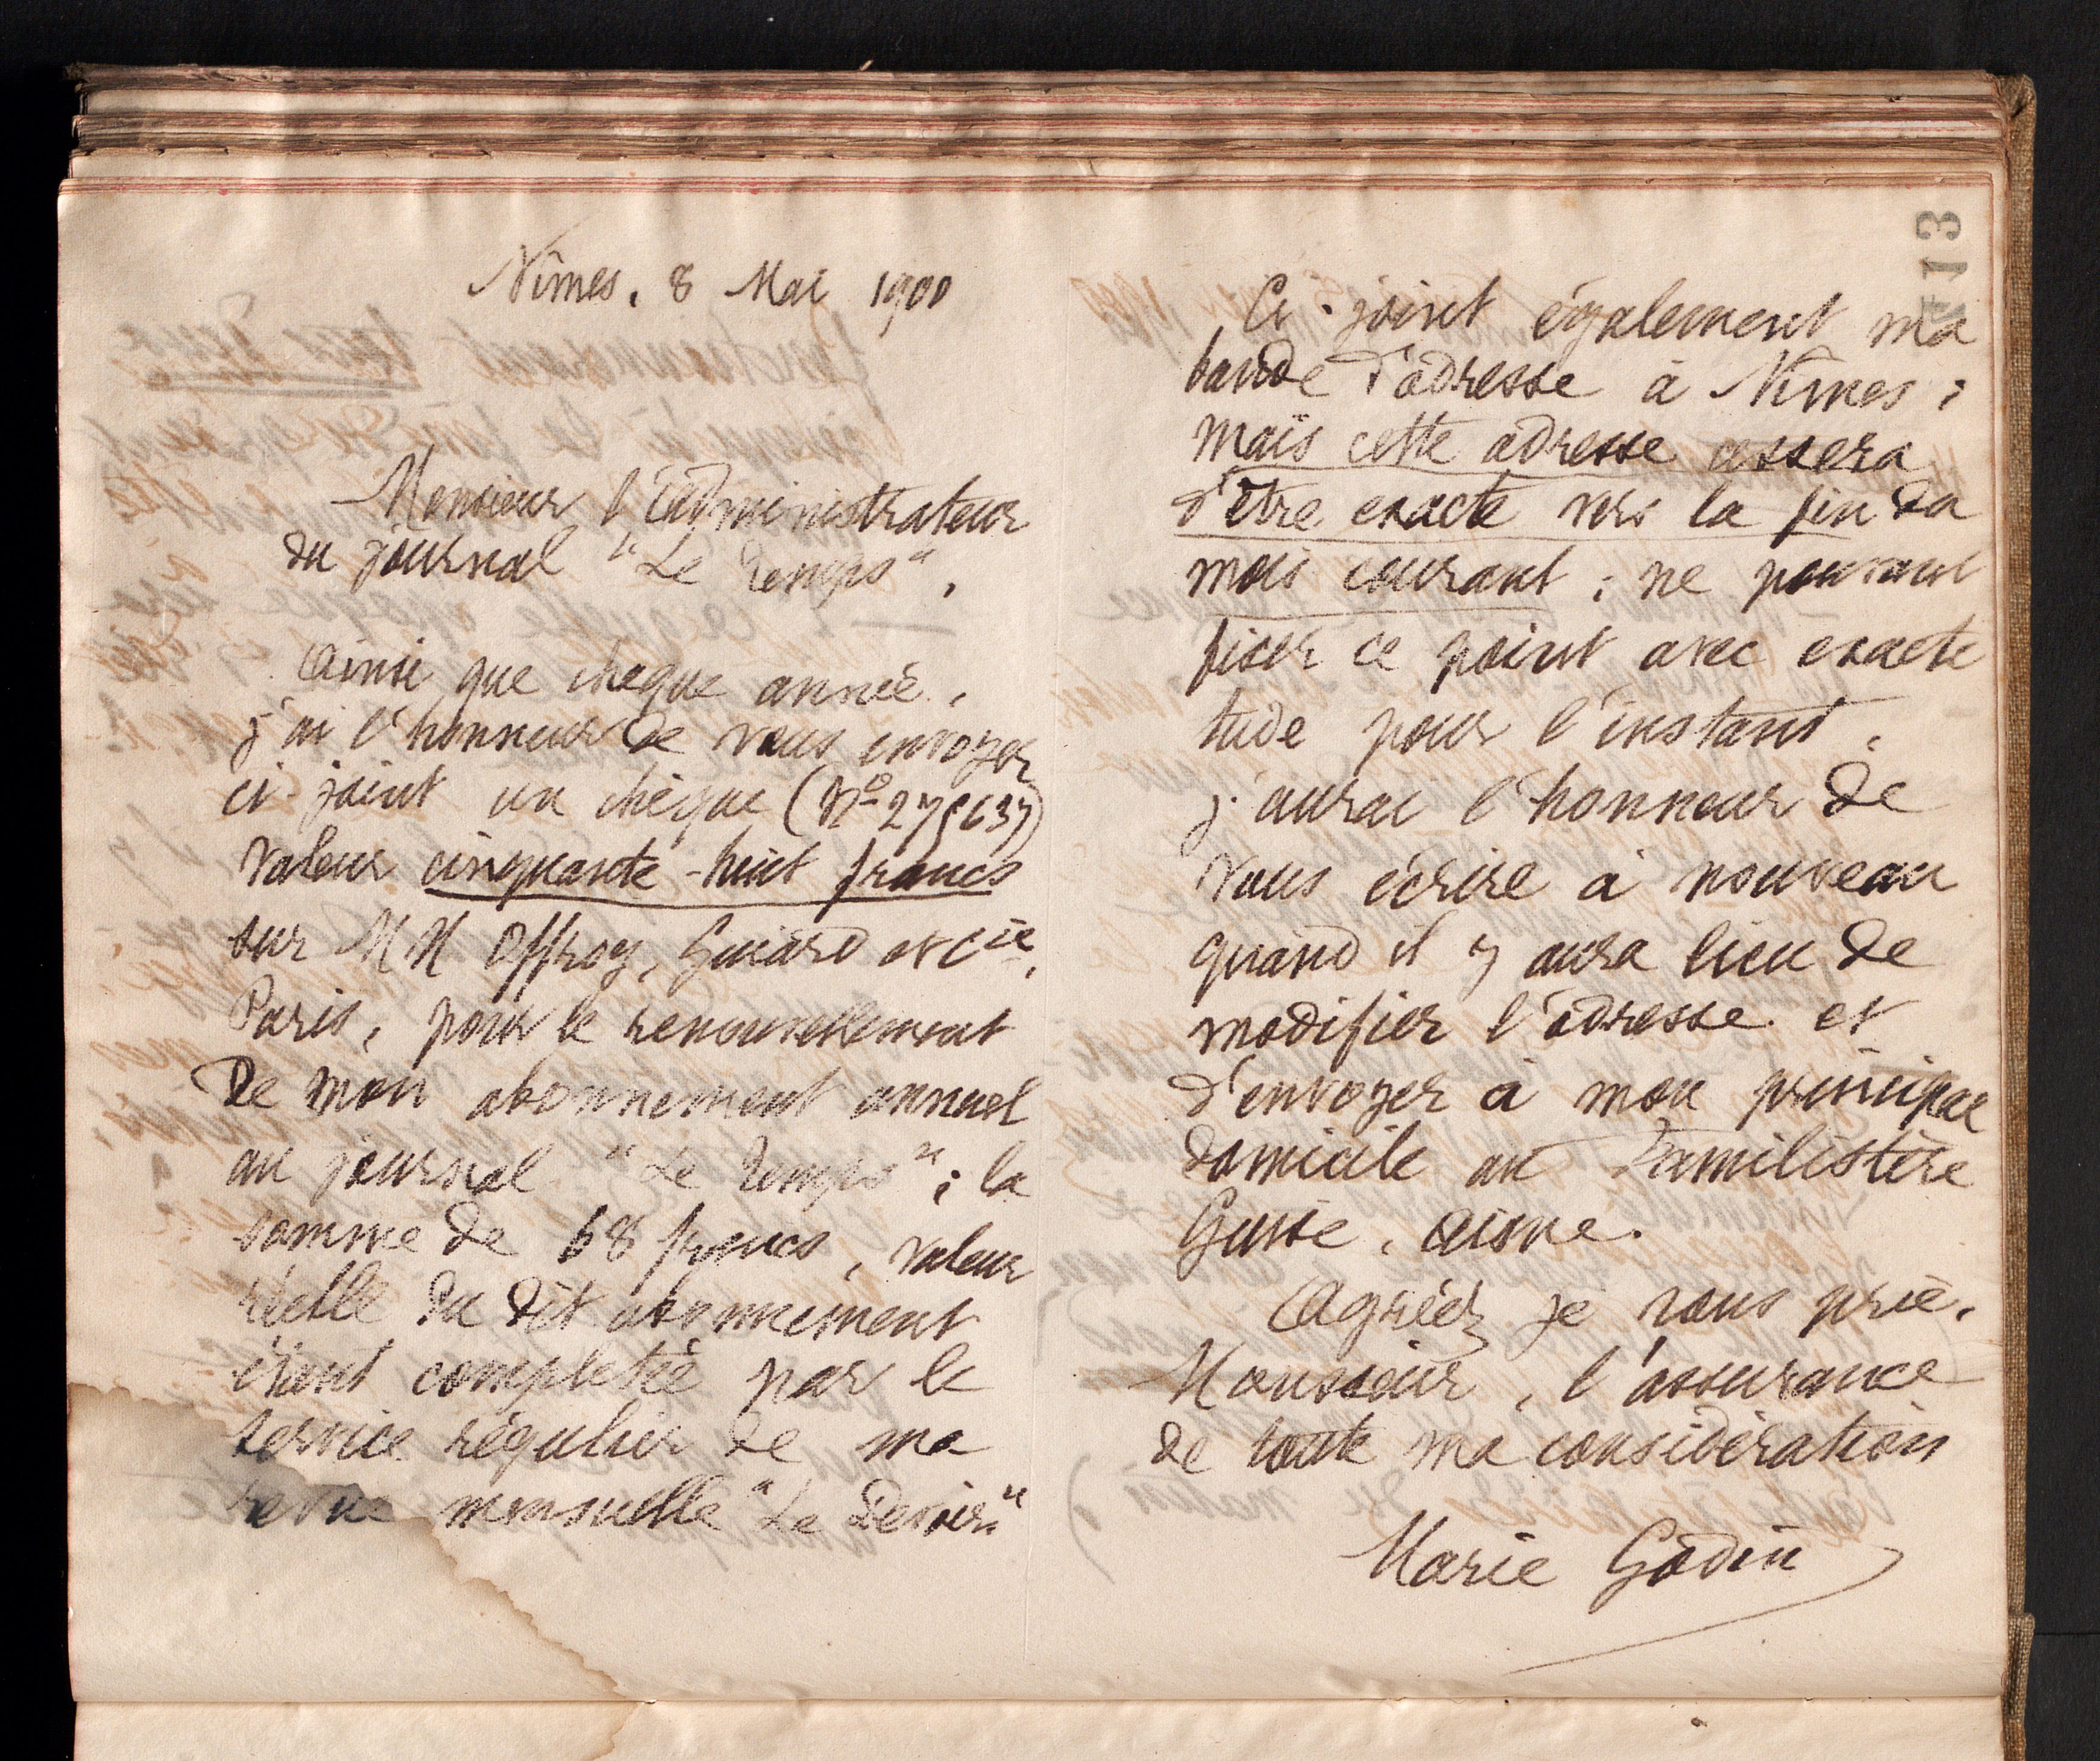 Nîmes, 8 Mai 1900
Monsieur l'administrateur
du journal "Le Temps",
Ainsi que chaque année,
j'ai l'honneur de vous envoyer
ci-joint un chèque (No
valeur cinquante-huit francs
sur MM Offroy, Guiard et Cie,
Paris, pour le renouvellement
de mon abonnement annuel
au journal "Le Temps"; la
somme de 68 francs, valeur
réelle du dit abonnement
étant complétée par le
service régulier de ma
revue mensuelle "Le Devoir"
113
Ci-joint également ma
bande d'adresse à Nîmes;
mais cette adresse cessera
d'être exacte vers la fin du
mois courant; ne pouvant
fixer ce point avec exacti
tude pour l'instant,
j'aurai l'honneur de
vous écrire à nouveau
quand il y aura lieu de
modifier l'adresse et
d'envoyer à mon principal
domicile au Familistère
Guise, Aisne.
Agréez je vous prie,
Monsieur, l'assurance
de toute ma considération
Marie Godin